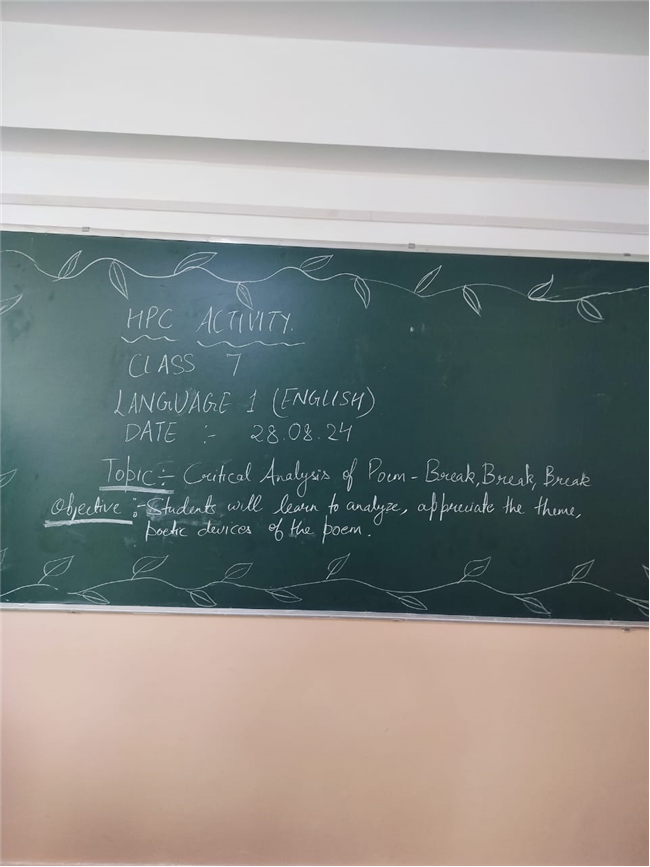 HPC ACTIVITY.
CLASS 7
LANGUAGE 1 (ENGLISH)
DATE :- 28.08.24
Topic:- Critical Analysis of Poem - Break, Break, Break
Objective :- Students will learn to analyze, appreciate the theme,
poetic devices of the poem.